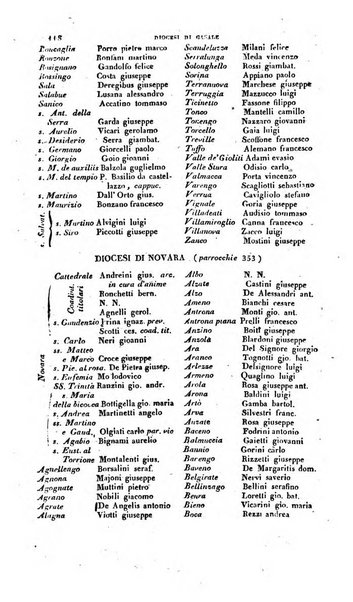 118
DIOCESI DI CASALE
Roncaglia Porro pietro marco
Ronzone Ronfani martino
Rosignano Gandolfo felice
Rossingo Costa giuseppe
Sala Deregibus giuseppe
Salabue Lusana alessandro
Sanico Accatino tommaso
s. Ant. della
Serra Garda giuseppe
s. Aurelio Vicari gerolamo
s. Desiderio Serra giambat.
s. Germano Giorcelli paolo
s. Giorgio Goio gioanni
s. M. de auxiliis Balzola guglielmo
s. M. del tempio P. Basilio da castel-
lazzo, cappuc.
s. Martino Dall' Orto gius.
s. Maurizio Bonzano francesco
s. Salvat.
s. Martino Alvigini luigi
s. Siro Piccotti giuseppe
Scandeluzza Milani felice
Serralunga Meda vincenzo
Solonghello Rossi giambat.
Sorina Appiano paolo
Terranova Marchese giuseppe
Terruggia Mazzucco luigi
Ticinetto Fassone filippo
Tonco Mantelli camillo
Torcengo Nazzaro giovanni
Treville Scoffone francesco
Tuffo Amelotti giuseppe
Valle de'Gioliti Adami evasio
Valmacca Porta vincenzo
Varengo Scagliotti sebastiano
s. Vicario Costanzo francesco
Vignale Goria giuseppe
Villadeati Audisio tommaso
Villamiroglio Ganora giuseppe
Zanco Mostini giuseppe
DIOCESI DI NOVARA (parrocchie 353)
Novara
Cattedrale Andreini gius. arc.
in cura d'anime
Coadiut. titolari
Ronchetti bern.
N. N.
Agnelli gerol.
s. Gaudenzio Frina ignaz. prev.
Scotti ces. coad. tit.
s. Carlo Neri gioanni
ss. Matteo
e Marco Croce giuseppe
s. Pie. al rosa. De Pietra giusep.
s. Eufemia Mo lodovico
SS. Trinità Ranzini gio. andr.
s. Maria
della bicocca Bottigella gio. maria
s. Andrea Martinetti angelo
ss. Martino
e Gaud. Olgiati carlo par. vic
s. Agabio Bignami aurelio
s. Eust. al
Torrione Montalenti gius.
Agnellengo Borsalini seraf.
Agnona Majoni giuseppe
Agognate Muttini pietro
Agrano Nobili giacomo
Agrate De Angelis antonio
Alagna Viotti giuseppe
Albo N. N.
Alzate Castini giuseppe
Alzo De Alessandri ant.
Antrona Monti gio. ant.
Antrona piana Prelli francesco
Anzino Boiti giuseppe
Anzola Blardoni giuseppe
Ara Del Signore giorgio
Aranco Tognotti gio. bat.
Arlezze Delsignore luigi
Armeno Quaglino luigi
Arola Rosa giuseppe ant.
Arona Baldini luigi
Artò Gamba bartol.
Arva Silvestri franc.
Auzate Rosa giuseppe
Baceno Podrini antonio
Balmuccia Gaietti giovanni
Bannio Gorini carlo
Barengo Rizzetti giuseppe
Baveno De Margaritis dom.
Belgirate Nervi saverio
Bellinzago Bellini gio. bat.
Beura Loretti gio. bat.
Bieno Vicarini gio. maria
Boca Rezzi andrea